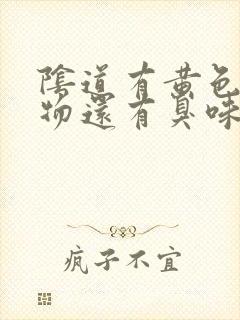 陰道有黃色
物還有臭味
疯子不宜